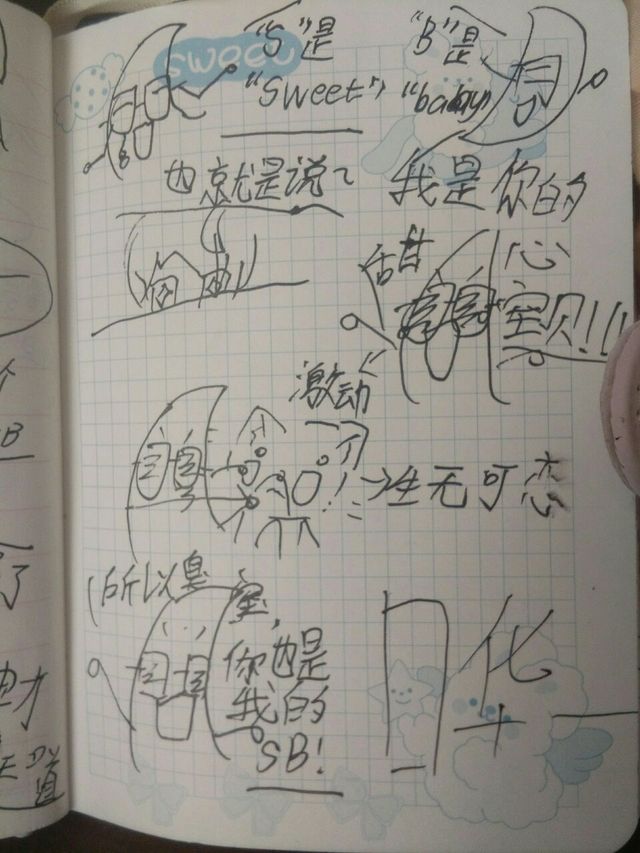 sweet
"S"是 "B"是
"Sweet", "baby"
也就是说~ 我是你的
甜心
宝贝!!!
激动
生无可恋
所以宝宝,
你也是
我的
SB!
化
B
了
才
道